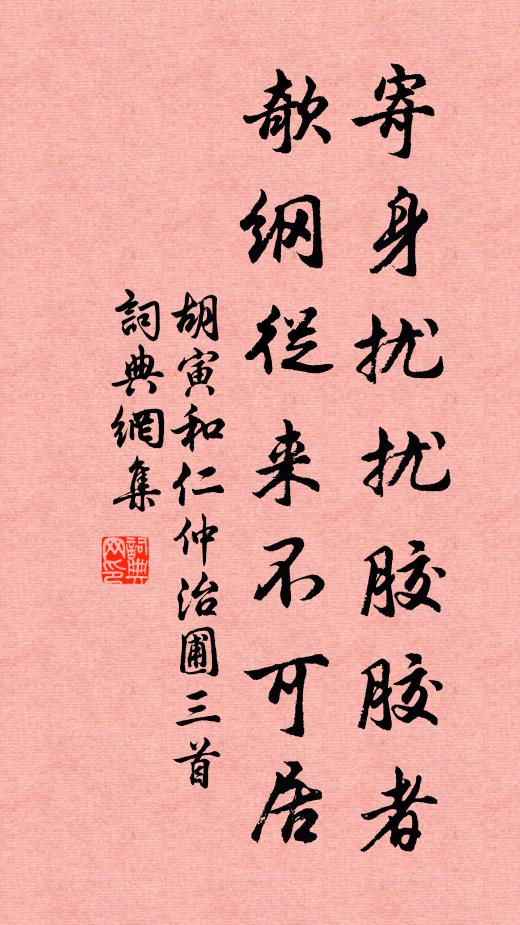 寄身扰扰胶胶者
欹纲從来不可居
胡寅和仁仲治圃三首
詞典網集
詞典网印